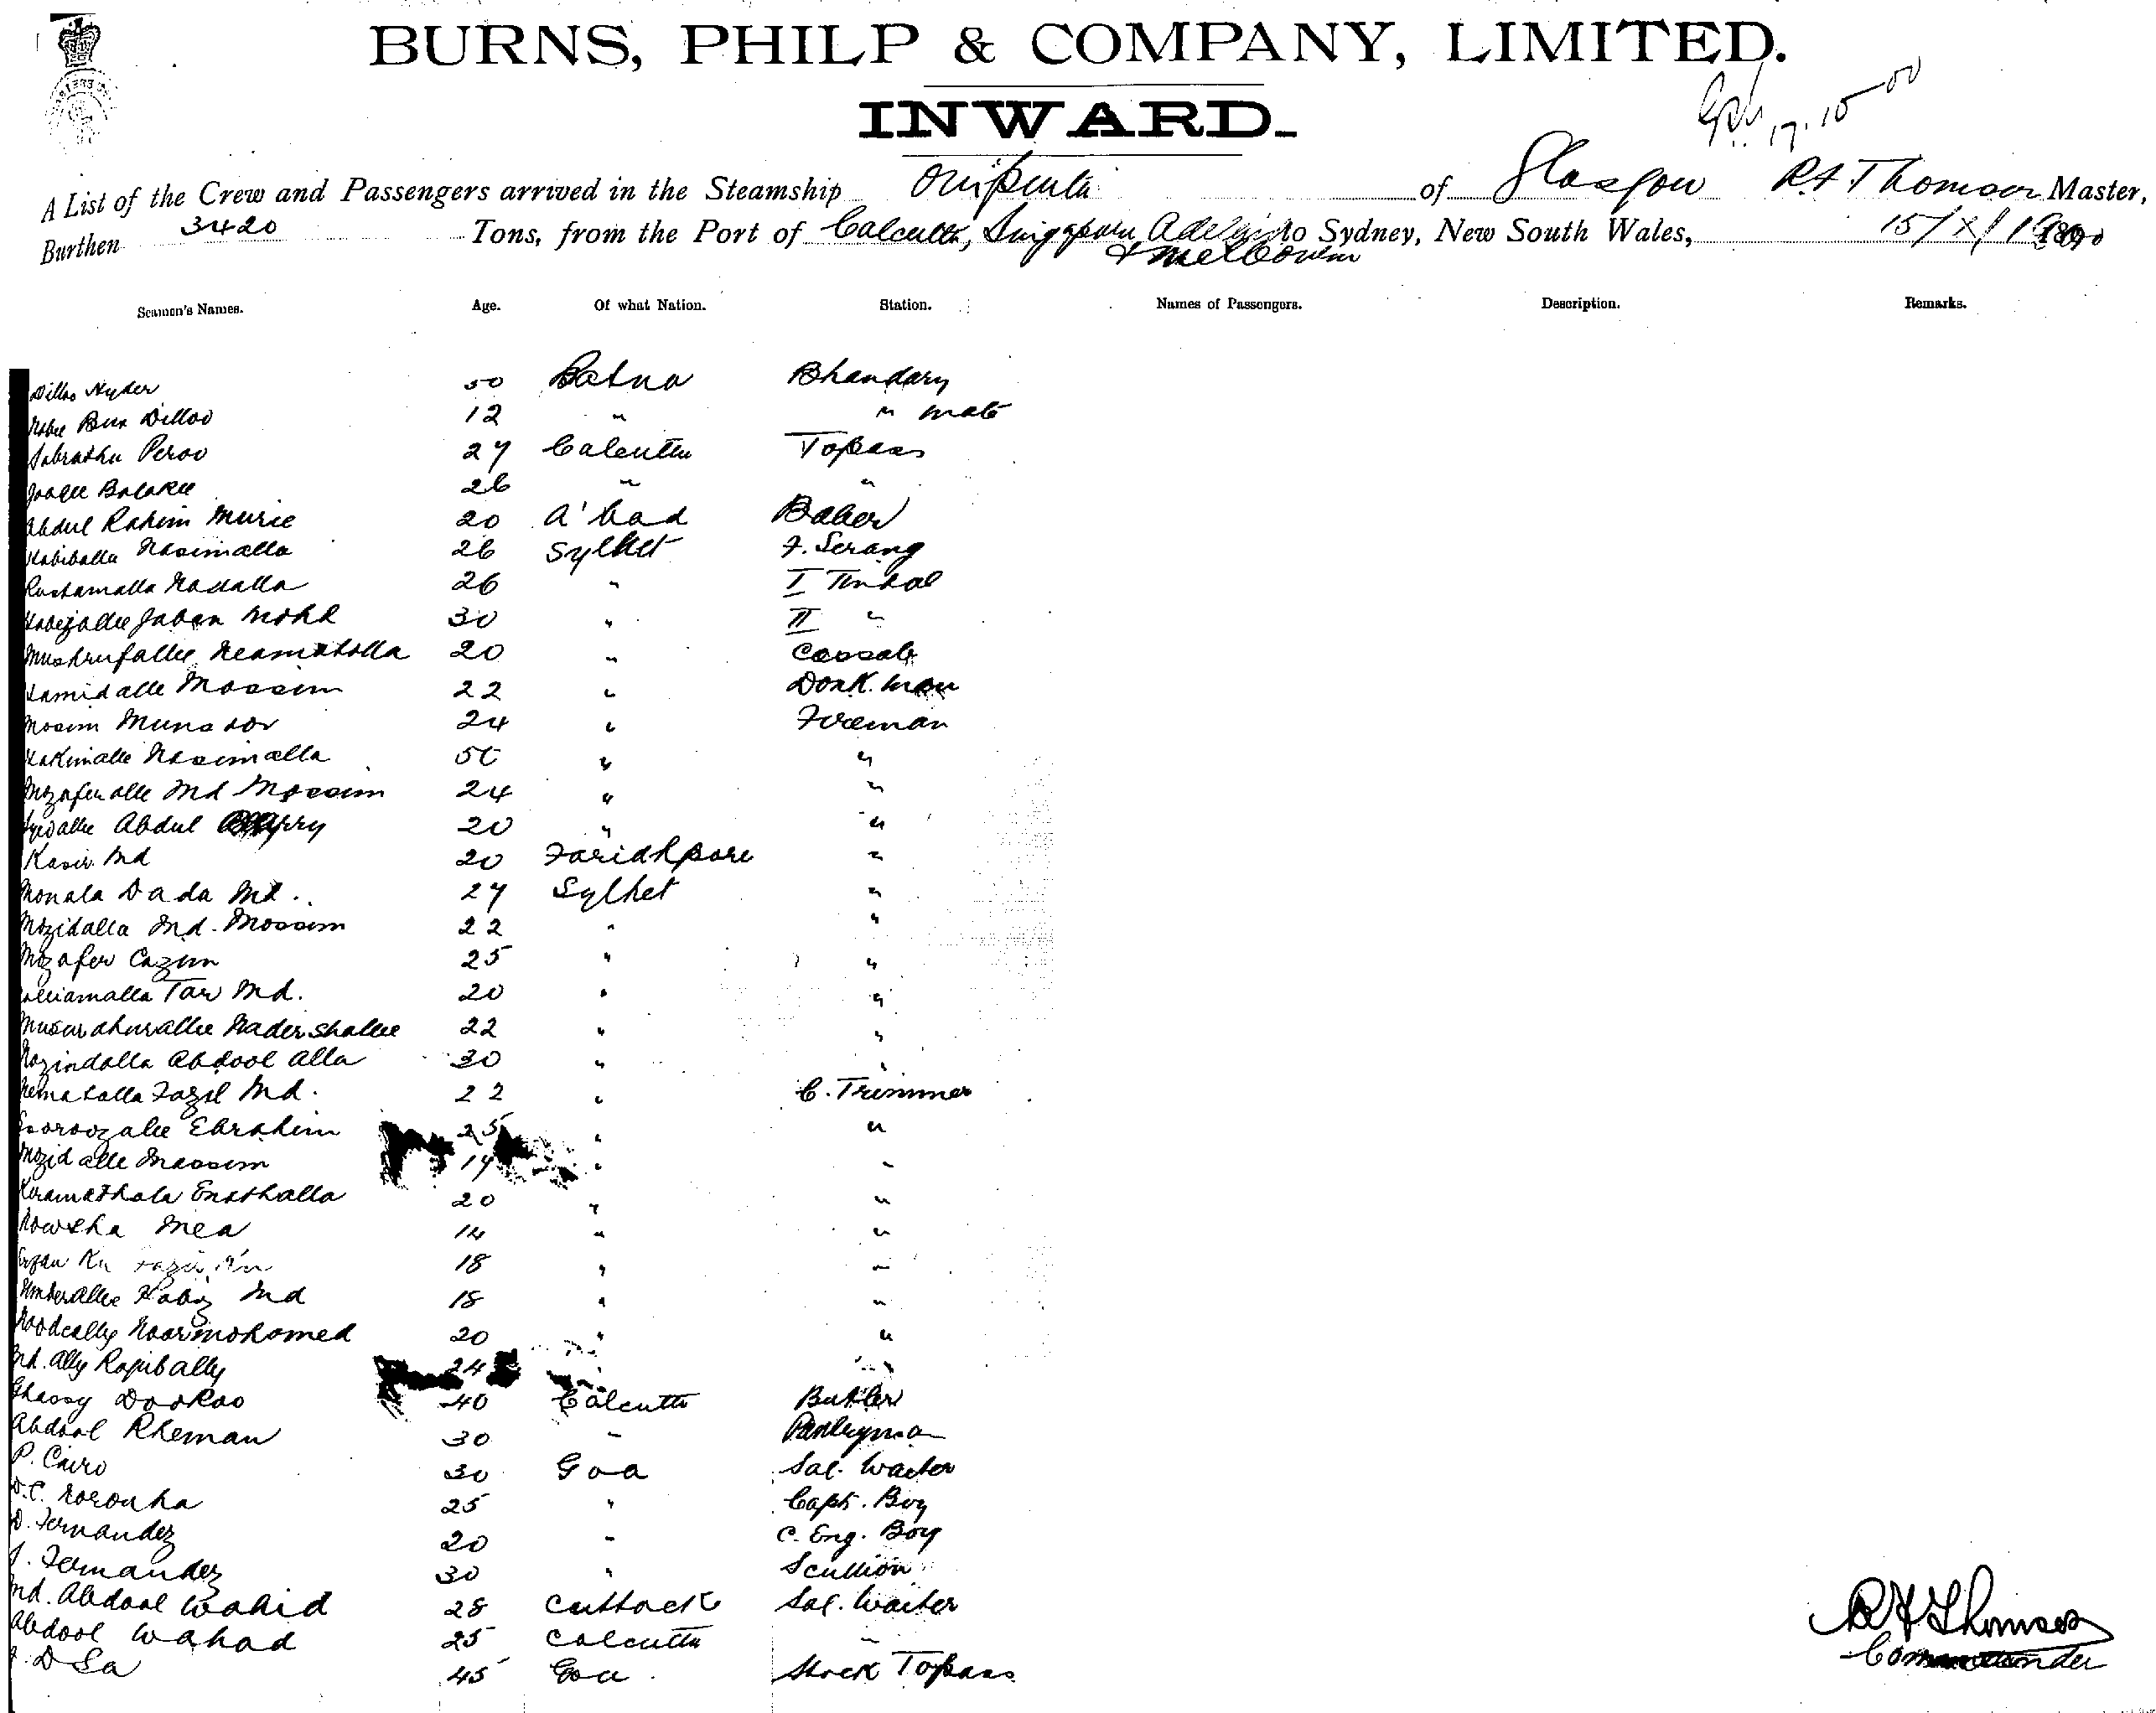 BURNS, PHILP & COMPANY, LIMITED.
INWARD.
17.10.00
A List of the Crew and Passengers arrived in the Steamship of Glasgow R.A Thomson Master,
Burthen 3420 Tons, from the Port of Calcutta, Singapore Adelaide to Sydney, New South Wales, 15/X/1900
& Melbourne
Seamen's Names. Age. Of what Nation. Station. Names of Passengers. Description. Remarks.
Dilloo Hyder 50 Patna Bhandary
Bux Dilloo 12 " " mate
Peroo 27 Calcutta Topass
26 " "
Abdul Rahim Murie 20 A'bad Baker
Habiballa Nasimalla 26 Sylhet F. Serang
Rustamalla 26 " I Tindal
Jaban Mohd 30 " II "
20 " Cassab
Hamidalle Mossim 22 " Donk. man
24 " Fireman
Hakimalle Nasimalla 50 " "
Mozaferalle Md Mossim 24 " "
Abdul 20 " "
Kasir Md 20 Faridhpore "
Monala Dada Md. 27 Sylhet "
Mozidalla Md. Mossim 22 " "
Mozafer Cazim 25 " "
Tar Md. 20 " "
Nadershallee 22 " "
Mozindalla Abdool Alla 30 " "
Nematalla Fazil Md. 22 " C. Trimmer
Ebrahim 25 " "
Mozidalle Mossim 17 " "
Keramathala Enathalla 20 " "
Rowsha Mea 14 " "
18 " "
Md 18 " "
Noormohamed 20 " "
Md. Ally Rajibally 24 " "
Ghassy Dookoo 40 Calcutta Butler
Abdool Rheman 30 " Pantryman
P. Cairo 30 Goa Sal. Waiter
D.C. Noronha 25 " Capt. Boy
D. Fernandez 20 " C. Eng. Boy
J. Fernandez 30 " Scullion
Md. Abdool Wahid 28 Cuttack Sal. Waiter
Abdool Wahad 25 Calcutta "
D Sa 45 Goa Stock Topass
R A Thomson
Commander